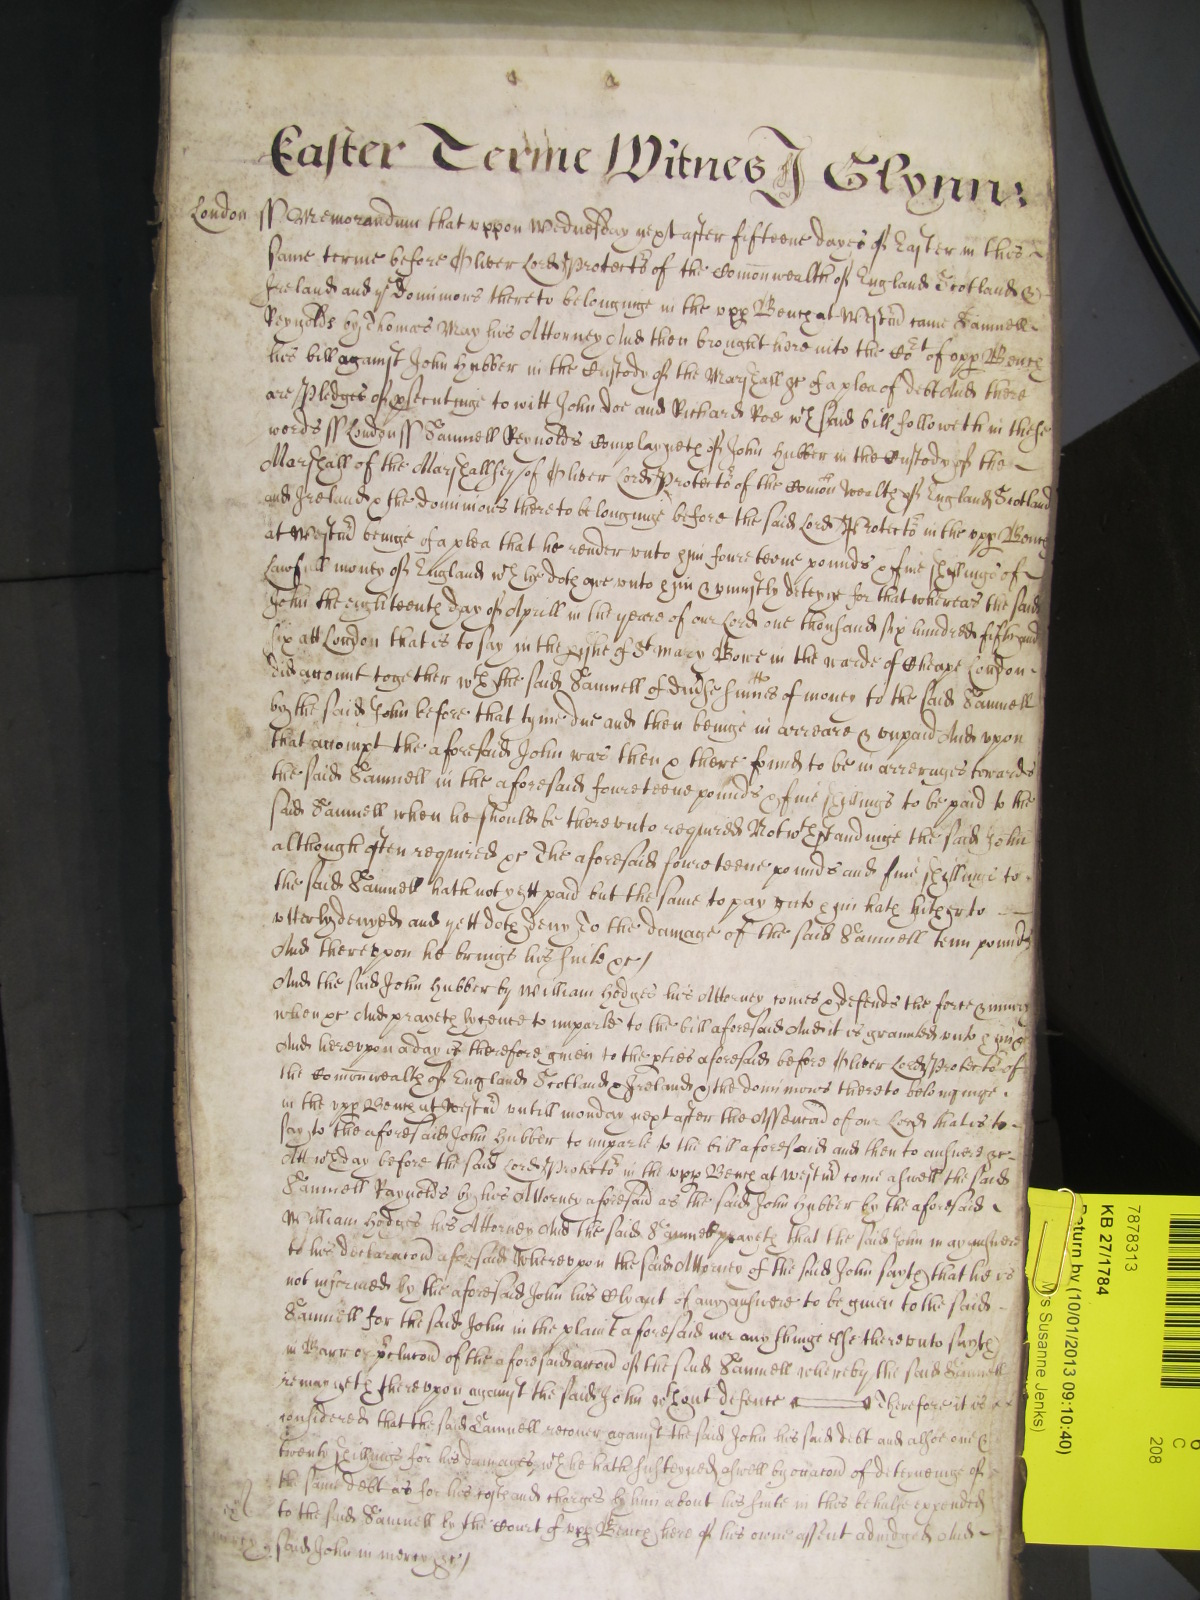 Easter Terme Witnes J Glynn:
London ss Memorandum that uppon Wednesday next after fifteene dayes of Easter in this
same terme before Oliver Lord Protector of the Comonwealth of England Scotland &
Ireland and ye Dominions thereto belonginge in the upp Bench at Westmd came Samuell
Reynolds by Thomas May his Attorney And then brought here into the Cort of upp Bench
his bill against John Hubber in the Custody of the Marshall &c of a plea of debt And there
are Pledges of psecutinge to witt John Doe and Richard Roe wch said bill followeth in these
words ss London ss Samuell Reynolds Complayneth of John Hubber in the Custody of the
Marshall of the Marshallsey of Oliver Lord Protector of the Comon wealth of England Scotland
and Ireland & the dominions thereto belonginge before the said Lord Protector in the upp Bench
at Westmd beinge of a plea that he render unto him fourteene pounds & five shillings of
Lawfull money of England wch he doth owe unto him & uniustly deteyne for that whereas the said
John the eighteenth day of Aprill in the yeare of our Lord one thousand six hundred fifty and
six att London that is to say in the pishe of St Mary Bowe in the warde of Cheape London
did accompt together wth the said Samuell of divse summes of money to the said Samuell
by the said John before that tyme due and then beinge in arreare & unpaid And upon
that accompt the aforesaid John was then & there found to be in arrerages towards
the said Samuell in the aforesaid fourteene pounds & five shillings to be paid to the
said Samuell when he should be thereunto required Notwthstandinge the said John
although often required &c The aforesaid fourteene pounds and five shillings to
the said Samuell hath not yett paid but the same to pay unto him hath hitherto
utterly denyed and yett doth deny To the damage of the said Samuell tenn pounds
And thereupon he brings his suite &c/
And the said John Hubber by William Hodges his Attorney comes & defends the force & iniury
when &c And prayeth lycence to imparle to the bill aforesaid And it is graunted unto him &c
And hereupon a day is therefore given to the pties aforesaid before Oliver Lord Protector of
the Comonwealth of England Scotland & Ireland & the dominions thereto belonginge
in the upp Bench at Westmd untill monday next after the Assencion of our Lord that is to
say to the aforesaid John Hubber to imparle to the bill aforesaid and then to answere &c
Att wch day before the said Lord Protector in the upp Bench at Westmd come aswell the said
Samuell Raynolds by his Attorney aforesaid as the said John Hubber by the aforesaid
William Hodges his Attorney And the said Samuell prayeth that the said John may answere
to his declaracon aforesaid Whereupon the said Attorney of the said John sayth that he is
not informed by the aforesaid John his Clyant of any answere to be given to the said
Samuell for the said John in the plaint aforesaid nor any thinge else thereunto sayth
in Barr or pclucon of the aforesaid accon of the said Samuell whereby the said Samuell
remayneth thereupon against the said John wthout defence Therefore it is
considered that the said Samuell recover against the said John his said debt and alsoe one &
twenty shillings for his damages wch he hath susteyned aswell by occacon of deteyneinge of
the same debt as for his costs and charges by him about his suite in this behalfe expended
to the said Samuell by the Court of upp Bench here of his owne assent adiudged And
said John in mercy &c/
7878313
KB 27/1784
Return by (10/01/2013 09:10:40)
s Susanne Jenks)
6
C
208